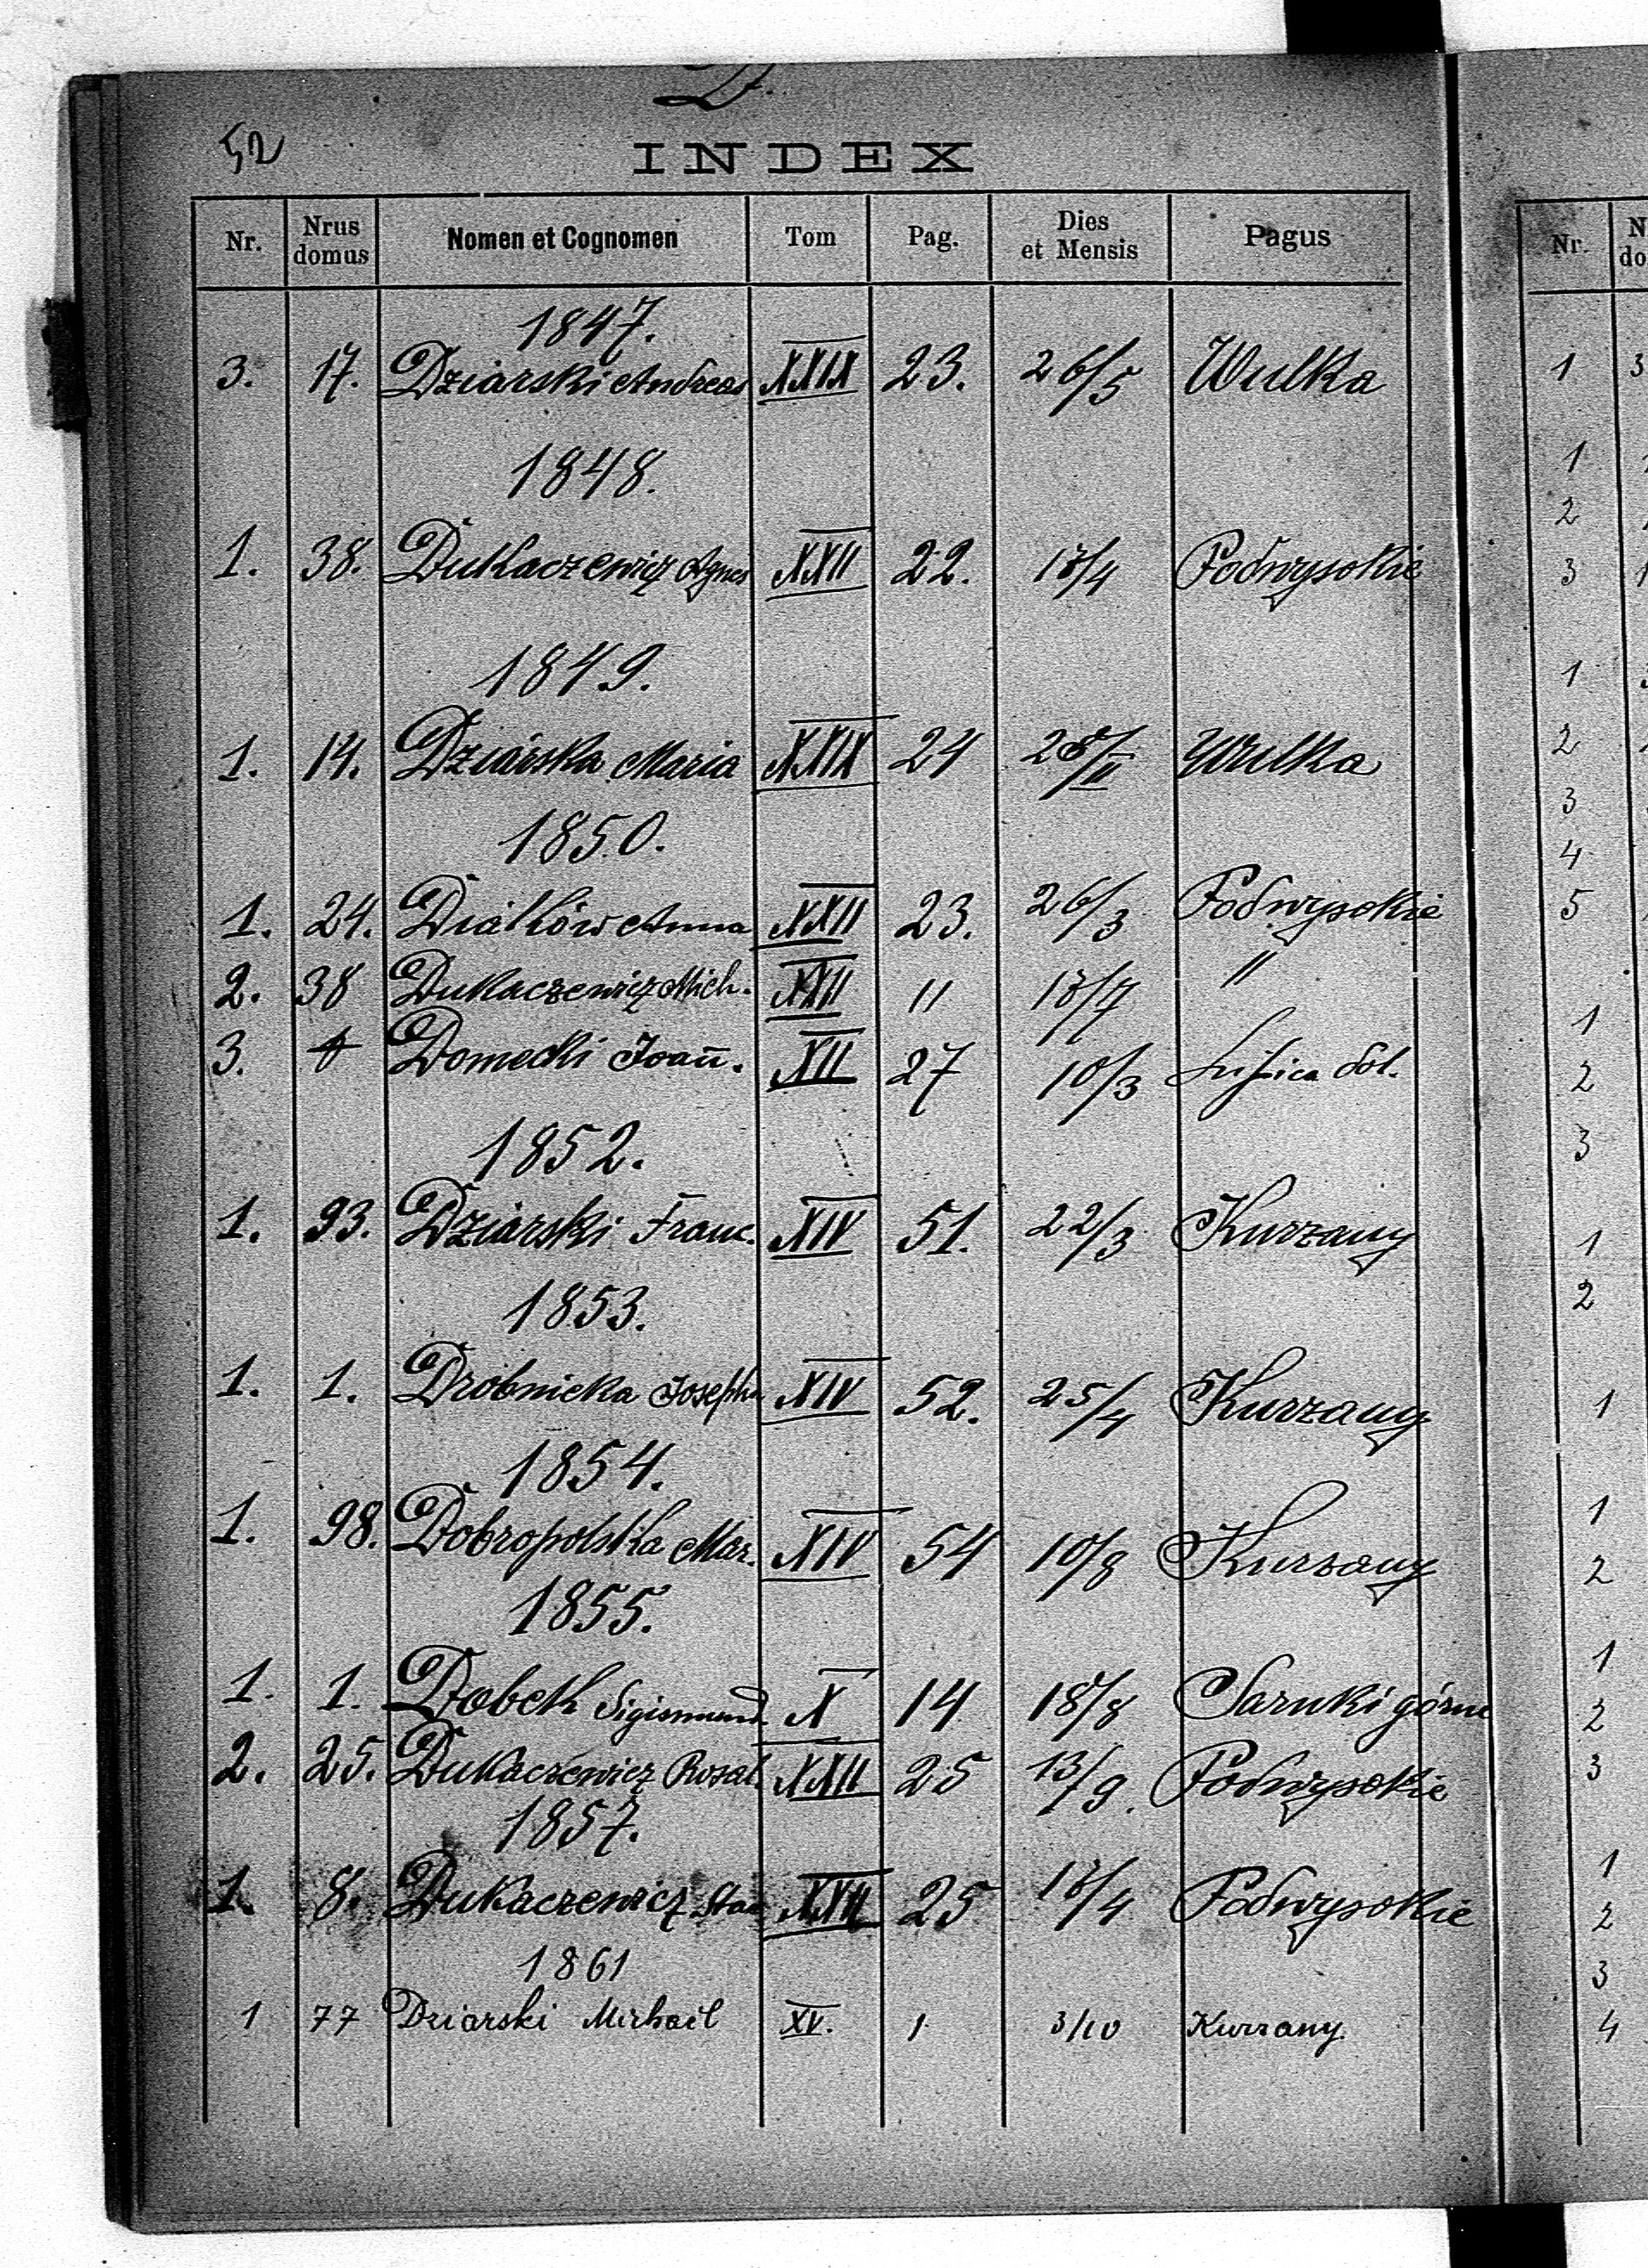 D.
52
INDEX
Nr. Nrus domus Nomen et Cognomen Tom Pag. Dies et Mensis Pagus
1847.
3. 17. Dziarski Andreas XXIX 23. 26/5 Wulka
1848.
1. 38. Dukaczewicz Agnes XXII 22. /4 Podwysokie
1849.
1. 14. Dziarska Maria XXIX 24 Wulka
1850.
1. 24. Anna XXII 23. 26/3 Podwysokie
2. 38 Dukaczewicz Mich. XXII 11 /7 "
3. Domecki Joañ. XII 27 10/3 Lipica dol.
1852.
1. 93. Dziarski Franc. XIV 51. 22/3 Kurzany
1853.
1. 1. Drobnicka Josepha XIV 52. 25/4 Kurzany
1854.
1. 98. Dobropolska Mar. XIV 54 10/8 Kurzany
1855.
1. 1. Sigismund X 14 18/8 Sarnki górne
2. 25. Dukaczewicz Rosal. XXII 25 13/9. Podwysokie
1857.
1. 8. Dukaczewicz XXII 25 /4 Podwysokie
1861
1 77 Dziarski Michael XV. 1 3/10 Kurzany
Nr. N do
1 3
1
2
3 1
1
2
3
4
5
1
2
3
1
2
1
1
2
1
2
3
1
2
3
4